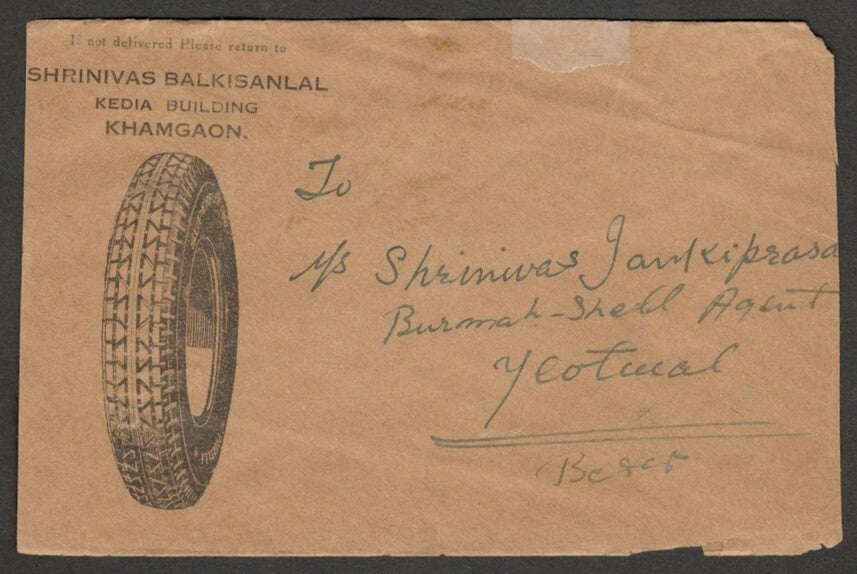 If not delivered Please return to
SHRINIVAS BALKISANLAL
KEDIA BUILDING
KHAMGAON.
To
M/s Shrinivas Jankiprasad
Burmah-Shell Agent
Yeotmal
Berar